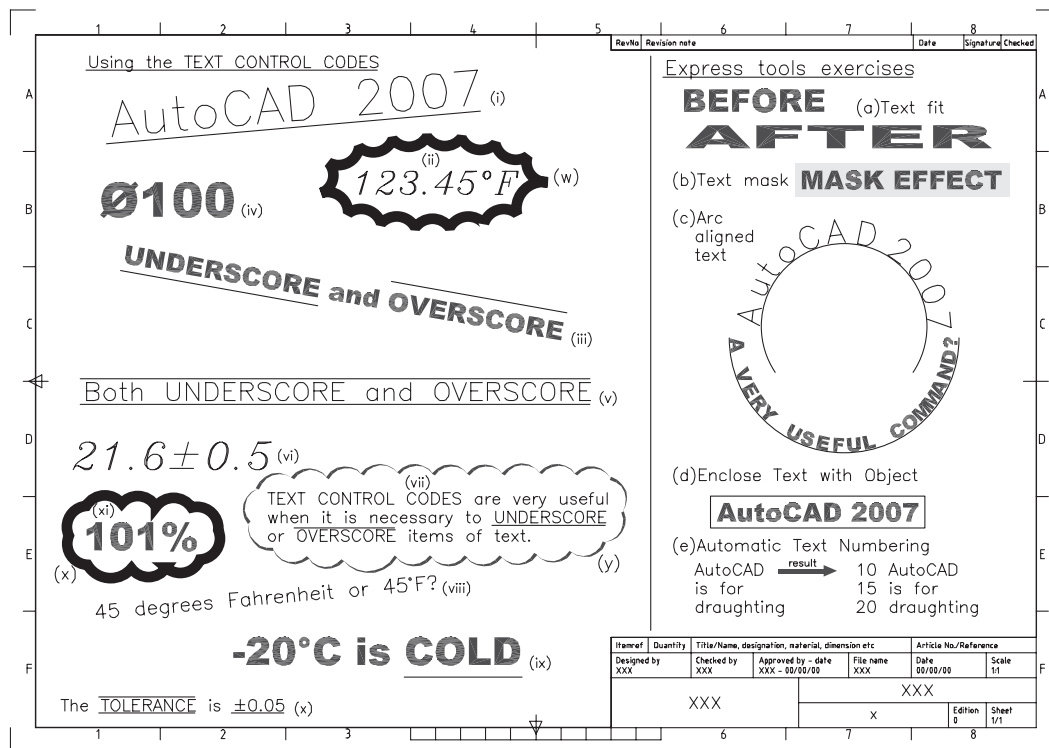 1 2 3 4 5 6 7 8
RevNo Revision note Date Signature Checked
A
B
C
D
E
F
Using the TEXT CONTROL CODES
AutoCAD 2007 (i)
(ii)
123.45°F (w)
Ø100 (iv)
UNDERSCORE and OVERSCORE (iii)
Both UNDERSCORE and OVERSCORE (v)
21.6±0.5 (vi)
(vii)
TEXT CONTROL CODES are very useful
when it is necessary to UNDERSCORE
or OVERSCORE items of text.
(y)
(xi)
101%
(x)
45 degrees Fahrenheit or 45°F? (viii)
-20°C is COLD (ix)
The TOLERANCE is ±0.05 (x)
Express tools exercises
BEFORE (a)Text fit
AFTER
(b)Text mask MASK EFFECT
(c)Arc
aligned
text
AutoCAD 2007
A VERY USEFUL COMMAND?
(d)Enclose Text with Object
AutoCAD 2007
(e)Automatic Text Numbering
AutoCAD result 10 AutoCAD
is for 15 is for
draughting 20 draughting
A
B
C
D
E
F
Itemref Quantity Title/Name, designation, material, dimension etc Article No./Reference
Designed by Checked by Approved by - date File name Date Scale
XXX XXX XXX - 00/00/00 XXX 00/00/00 1:1
XXX XXX
X Edition Sheet
0 1/1
1 2 3 4 6 7 8